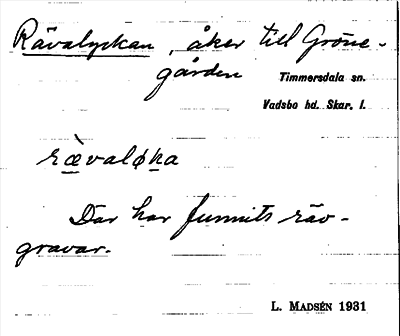 Rävalyckan, åker till Gröne-
gården
Timmersdala sn.
Vadsbo hd. Skar. l.
rævaløka
Där har funnits räv-
gravar.
L. MADSÉN 1931